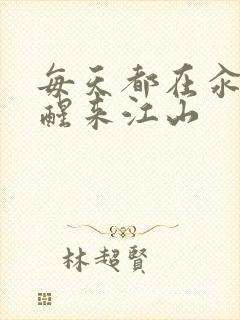 每天都在汆
醒来江山
林超賢